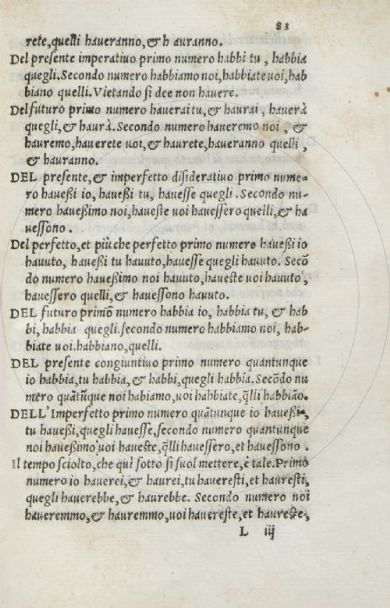 83
rete, quelli haueranno, & h auranno.
Del presente imperatiuo primo numero habbi tu, habbia
quegli. Secondo numero habbiamo noi, habbiate uoi, hab
biano quelli. Vietando si dee non hauere.
Del futuro primo numero hauerai tu, & haurai, hauerà
quegli, & haurà. Secondo numero haueremo noi, &
hauremo, hauerete uoi, & haurete, haueranno quelli,
& hauranno.
DEL presente, & imperfetto disideratiuo primo nume=
ro haueßi io, haueßi tu, hauesse quegli. Secondo nu-
mero haueßimo noi, haueste uoi hauessero quelli, & ha
uessono.
Del perfetto, et più che perfetto primo numero haueßi io
hauuto, haueßi tu hauuto, hauesse quegli hauuto. Secō
do numero haueßimo noi hauuto, haueste uoi hauuto,
hauessero quelli, & hauessono hauuto.
DEL futuro primō numero habbia io, habbia tu, & hab
bi, habbia quegli. secondo numero habbiamo noi, hab-
biate uoi. habbiano, quelli.
DEL presente congiuntiuo primo numero quantunque
io habbia, tu habbia, & habbi, quegli habbia. Secōdo nu
mero quātūque noi habiamo, uoi habbiate, q̃lli habbiāo.
DELL'Imperfetto primo numero quātunque io haueßi,
tu haueßi, quegli hauesse, secondo numero quantunque
noi haueßimo uoi haueste, q̃lli hauessero, et hauessono.
Il tempo sciolto, che quì sotto si suol mettere, è tale. Primo
numero io hauerei, & haurei, tu haueresti, et hauresti,
quegli hauerebbe, & haurebbe. Secondo numero noi
haueremmo, & hauremmo, uoi hauereste, et haureste,
L iij